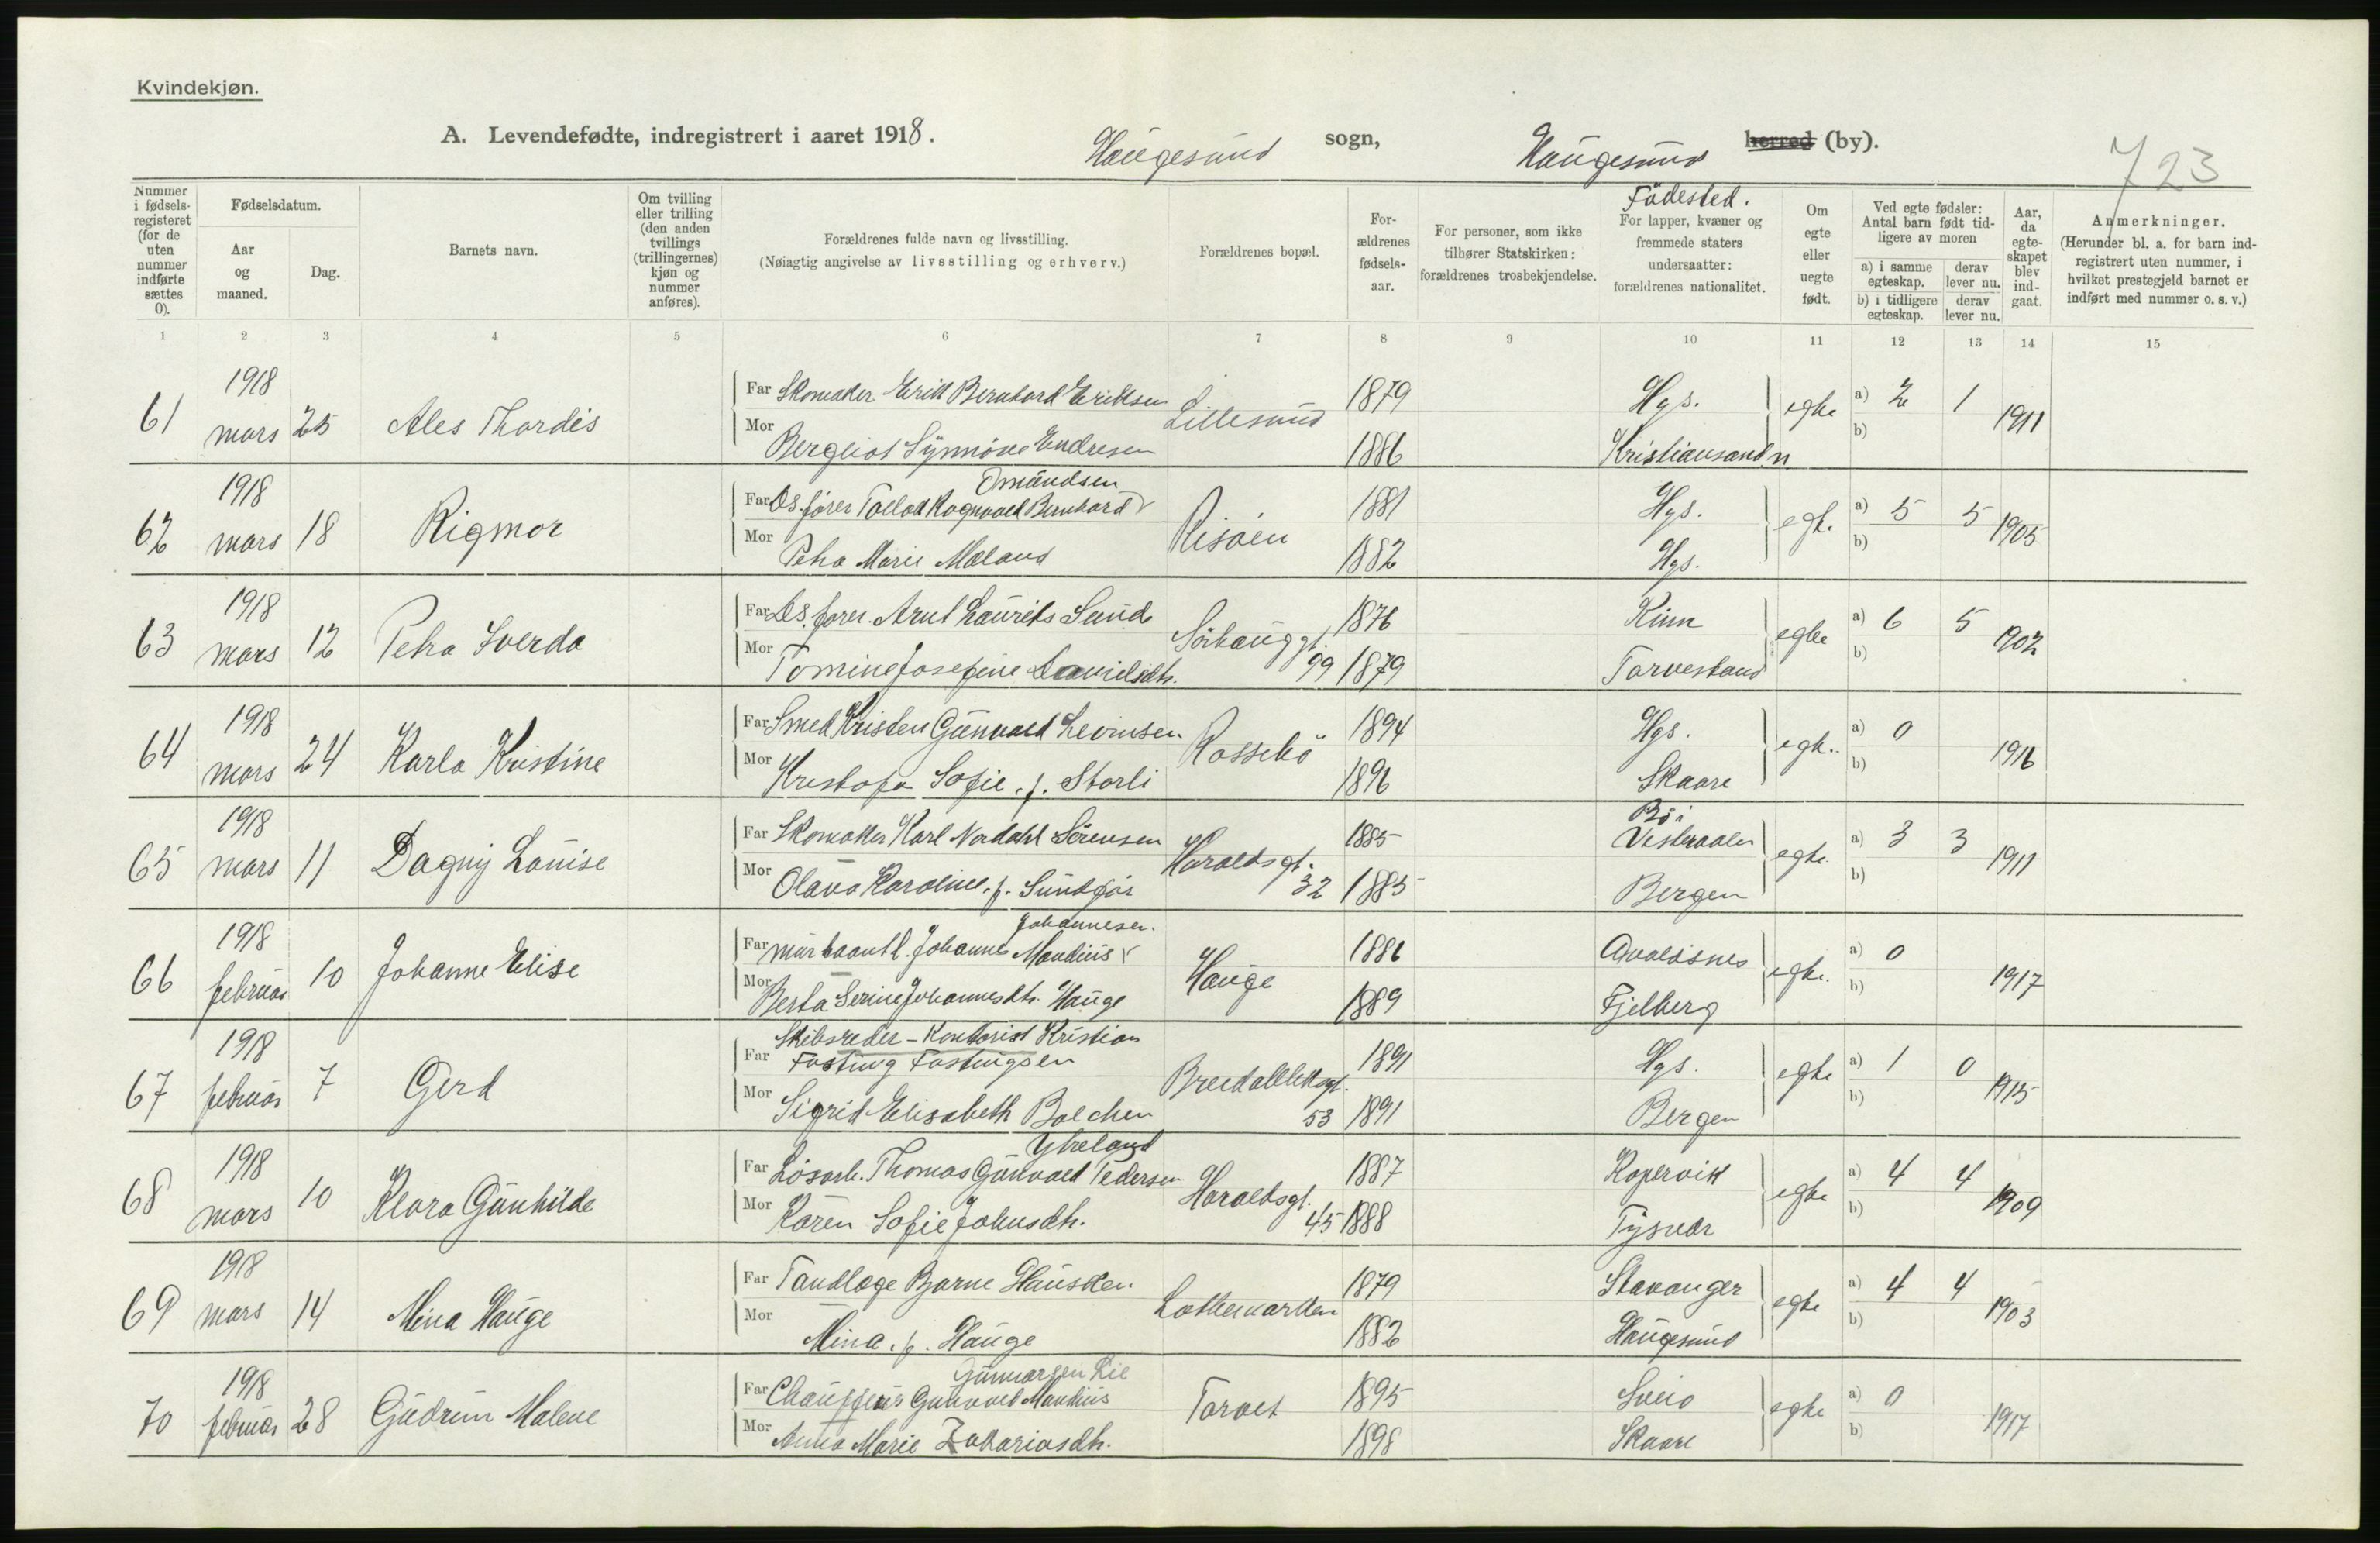 Kvindekjøn.
A. Levendefødte, indregistrert i aaret 1918.
Haugesund sogn, Haugesund herred (by).
723
Nummer i fødselsregisteret (for de uten nummer indførte sættes 0).
Fødselsdatum.
Aar og maaned.
Dag.
Barnets navn.
Om tvilling eller trilling (den anden tvillings (trillingernes) kjøn og nummer anføres).
Forældrenes fulde navn og livsstilling.
(Nøiagtig angivelse av livsstilling og erhverv.)
Forældrenes bopæl.
Forældrenes fødselsaar.
For personer, som ikke tilhører Statskirken: forældrenes trosbekjendelse.
Fødested.
For lapper, kvæner og fremmede staters undersaatter: forældrenes nationalitet.
Om egte eller uegte født.
Ved egte fødsler: Antal barn født tidligere av moren
a) i samme egteskap.
derav lever nu.
b) i tidligere egteskap.
derav lever nu.
Aar, da egteskapet blev indgaat.
Anmerkninger.
(Herunder bl. a. for barn indregistrert uten nummer, i hvilket prestegjeld barnet er indført med nummer o. s. v.)
1 2 3 4 5 6 7 8 9 10 11 12 13 14 15
61 1918 mars 25 Ales Thordis
Far Skomaker Erik Bernhard Eriksen Lillesund 1879 Hgs. egte a) 2 1 1911
Mor Bergliot Synnöve Endresen 1886 Kristiansand n b)
62 1918 mars 18 Rigmor
Omundsen
Far Ds.fører Tollak Ragnvald Bernhard Risøen 1881 Hgs. egte a) 5 5 1905
Mor Petra Marie Maland 1882 Hgs. b)
63 1918 mars 12 Petra Sverda
Far Ds. fører. Arnt Laurits Sund Sørhauggt. 99 1876 Kinn egte a) 6 5 1902
Mor Tomine Josefine Danielsdtr. 1879 Torvestand b)
64 1918 mars 24 Karla Kristine
Far Smed Kristen Gunvald Levinsen Rossebö 1894 Hgs. egte. a) 0 1916
Mor Kristofa Sofie. f. Storli 1896 Skaare b)
65 1918 mars 11 Dagny Louise
Far Skomaker Karl Nordahl Sörensen Haraldsgt. 32 1885 Bø i Vesteraalen egte a) 3 3 1911
Mor Olava Karoline. f. Sundfør 1885 Bergen b)
66 1918 februar 10 Johanne Elise
Johannesen.
Far murhaantl. Johannes Mandius Hauge 1886 Avaldsnes egte. a) 0 1917
Mor Berta Serine Johannesdtr. Hauge 1889 Fjelberg b)
67 1918 februar 7 Gerd
Skibsreder - Kontorist Kristian
Far Fasting Fastingsen Breidablikgt. 53 1891 Hgs. egte a) 1 0 1915
Mor Sigrid Elisabeth Balchen 1891 Bergen b)
68 1918 mars 10 Klara Gunhilde
Ytreland
Far Løsarb. Thomas Gunvald Pedersen Haraldsgt. 45 1887 Kopervik egte a) 4 4 1909
Mor Karen Sofie Johnsdtr. 1888 Tysvær b)
69 1918 mars 14 Mina Hauge
Far Tandlæge Bjarne Hausken Lothevarden 1879 Stavanger egte a) 4 4 1903
Mor Mina. f. Hauge 1882 Haugesund b)
70 1918 februar 28 Gudrun Malene
Gunnarsen Lie
Far Chauffeur Gunvald Mandius Torvet 1895 Sveio egte a) 0 1917
Mor Anna Marie Zakariasdtr. 1898 Skaare b)